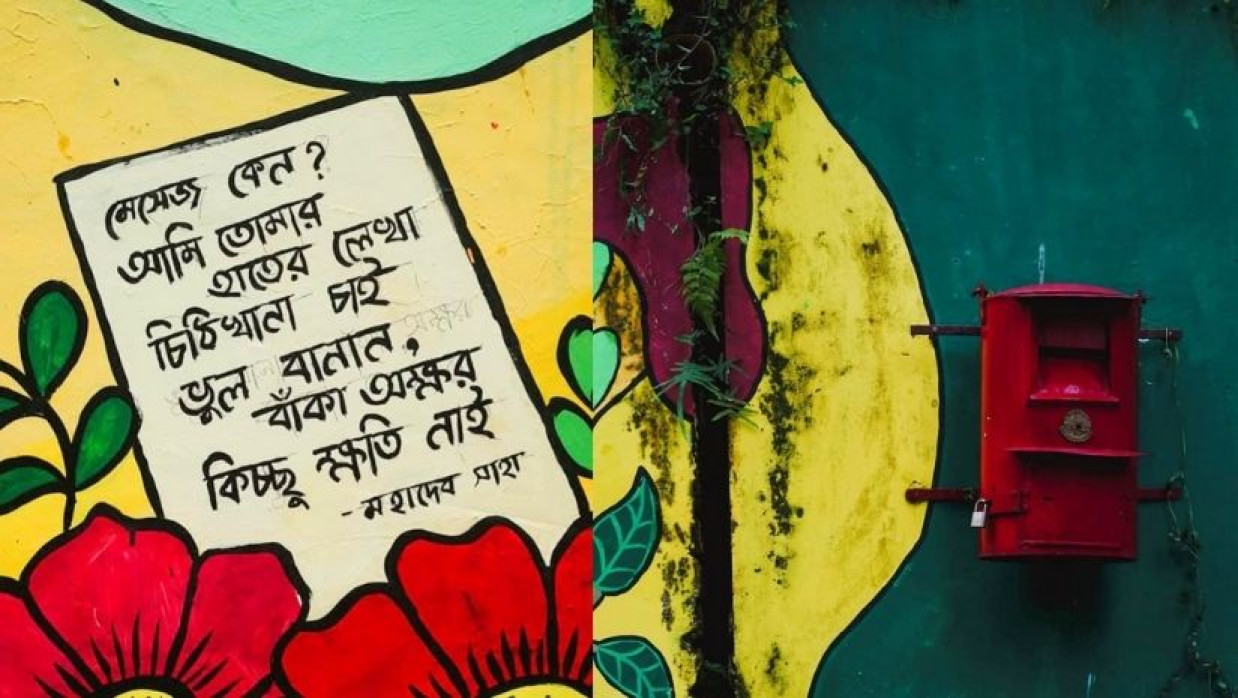 মেসেজ কেন?
আমি তোমার
হাতের লেখা
চিঠিখানা চাই
ভুল বানান,
বাঁকা অক্ষর
কিচ্ছু ক্ষতি নাই
- মহাদেব সাহা